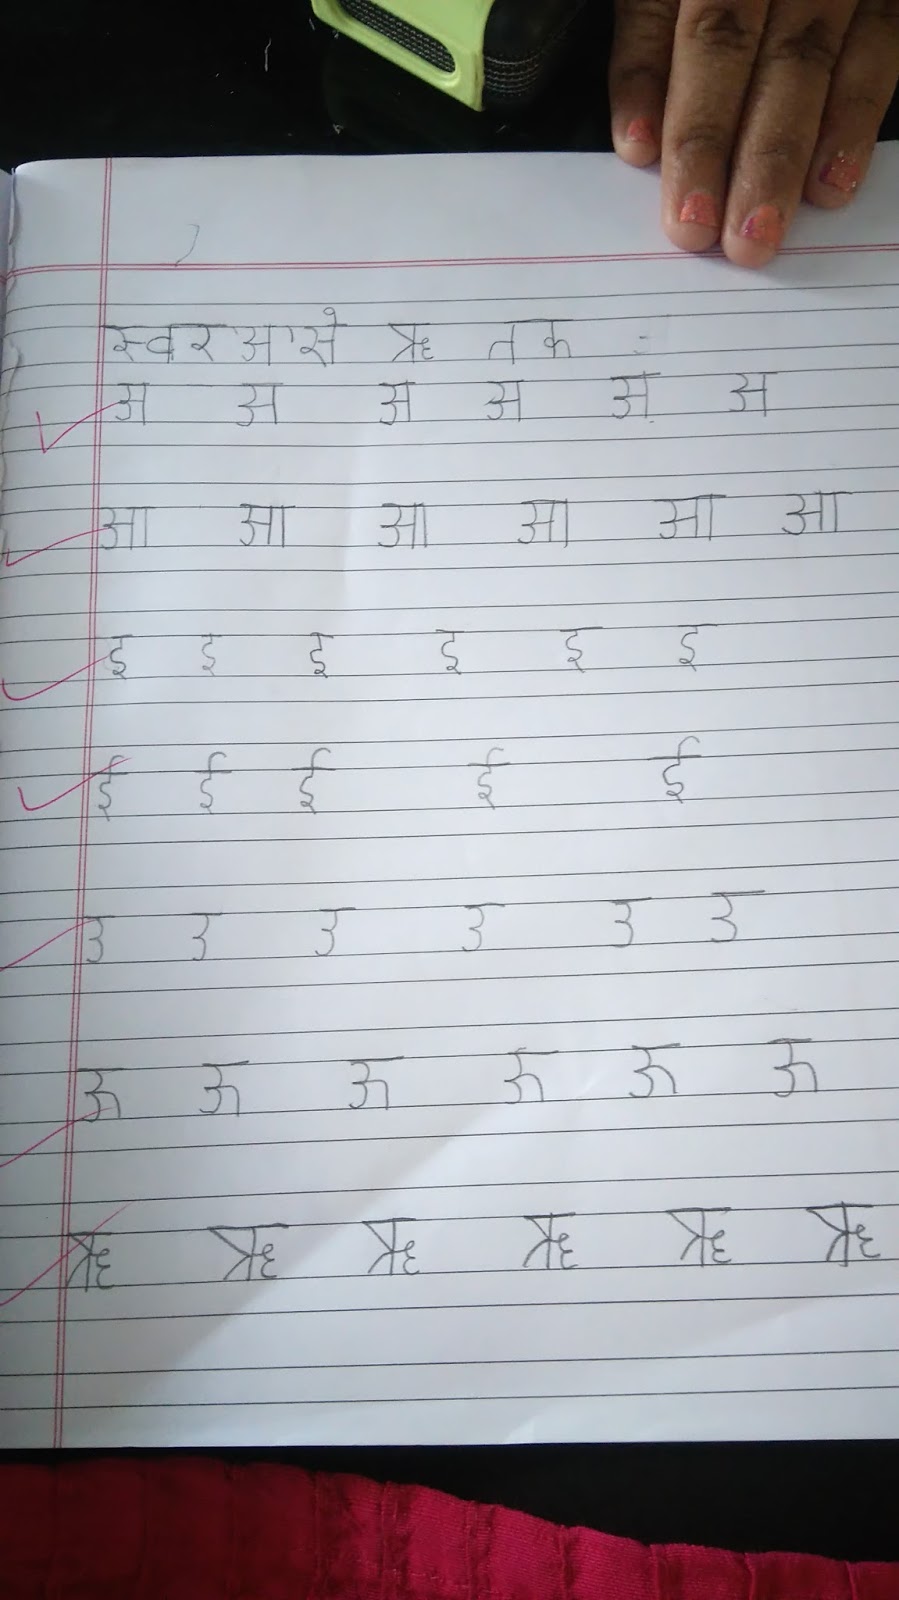 स्वर 'अ' से ऋ तक :-
अ अ अ अ अ अ
आ आ आ आ आ आ
इ इ इ इ इ इ
ई ई ई ई ई
उ उ उ उ उ उ
ऊ ऊ ऊ ऊ ऊ ऊ
ऋ ऋ ऋ ऋ ऋ ऋ